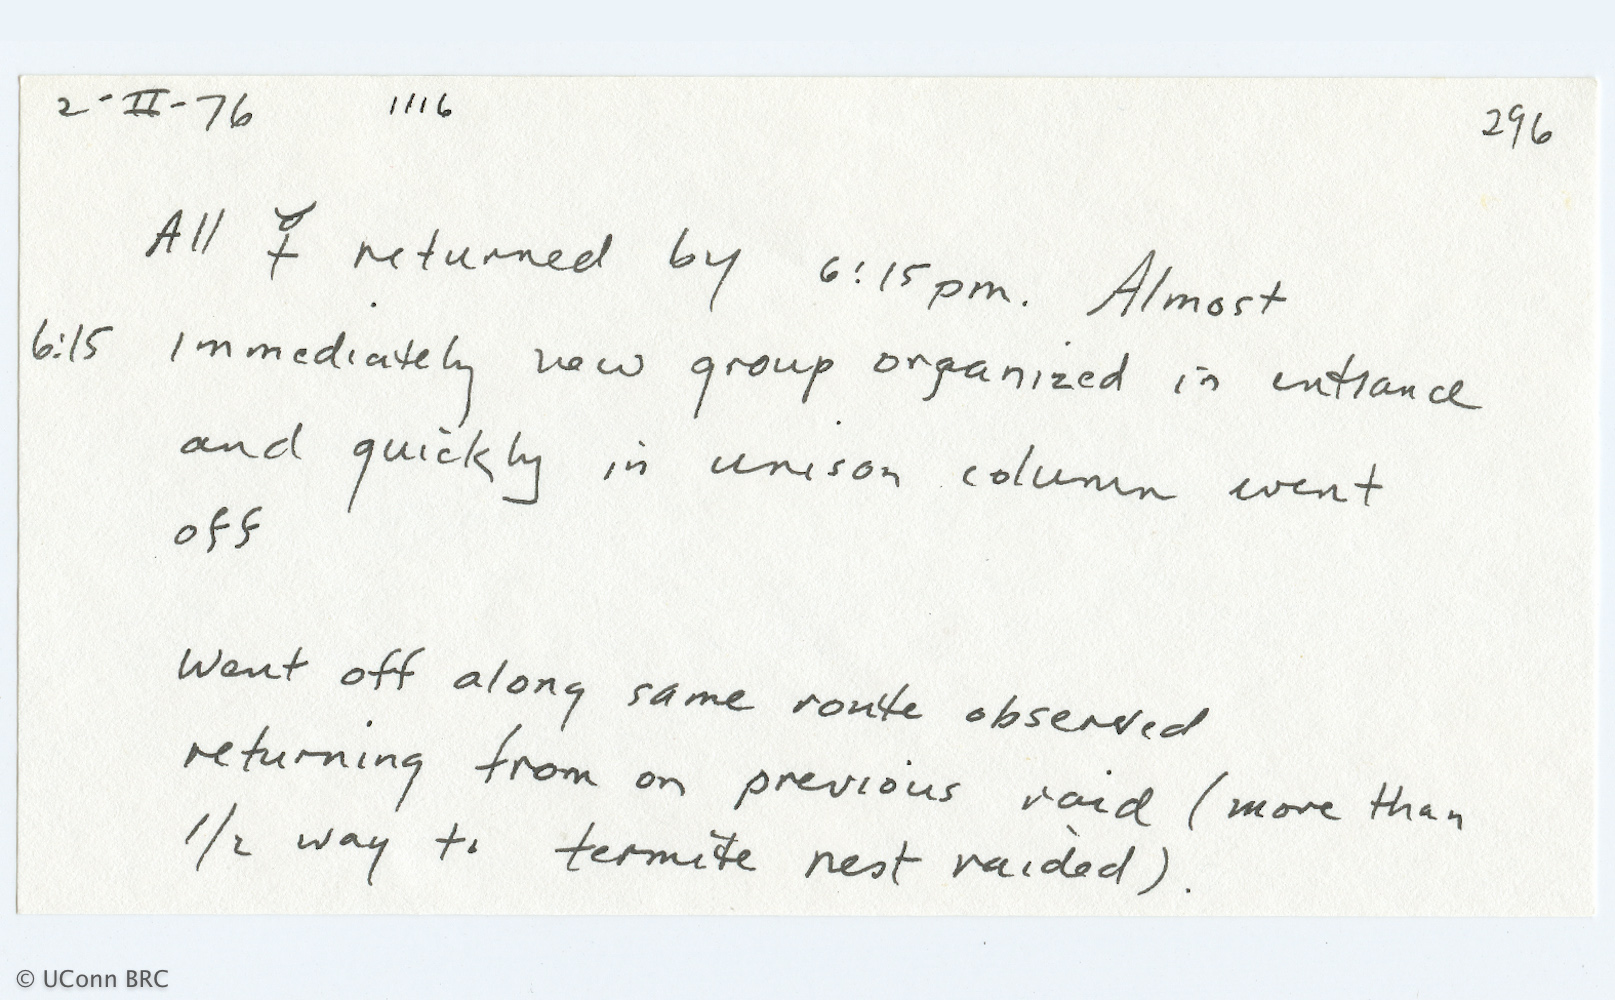 2-II-76 1116 296
All ☿ returned by 6:15pm. Almost
6:15 immediately new group organized in entrance
and quickly in unison column went
off
Went off along same route observed
returning from on previous raid (more than
1/2 way to termite nest raided).
© UConn BRC